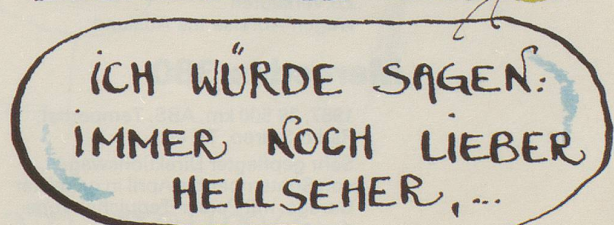 ICH WÜRDE SAGEN:
IMMER NOCH LIEBER
HELLSEHER,...